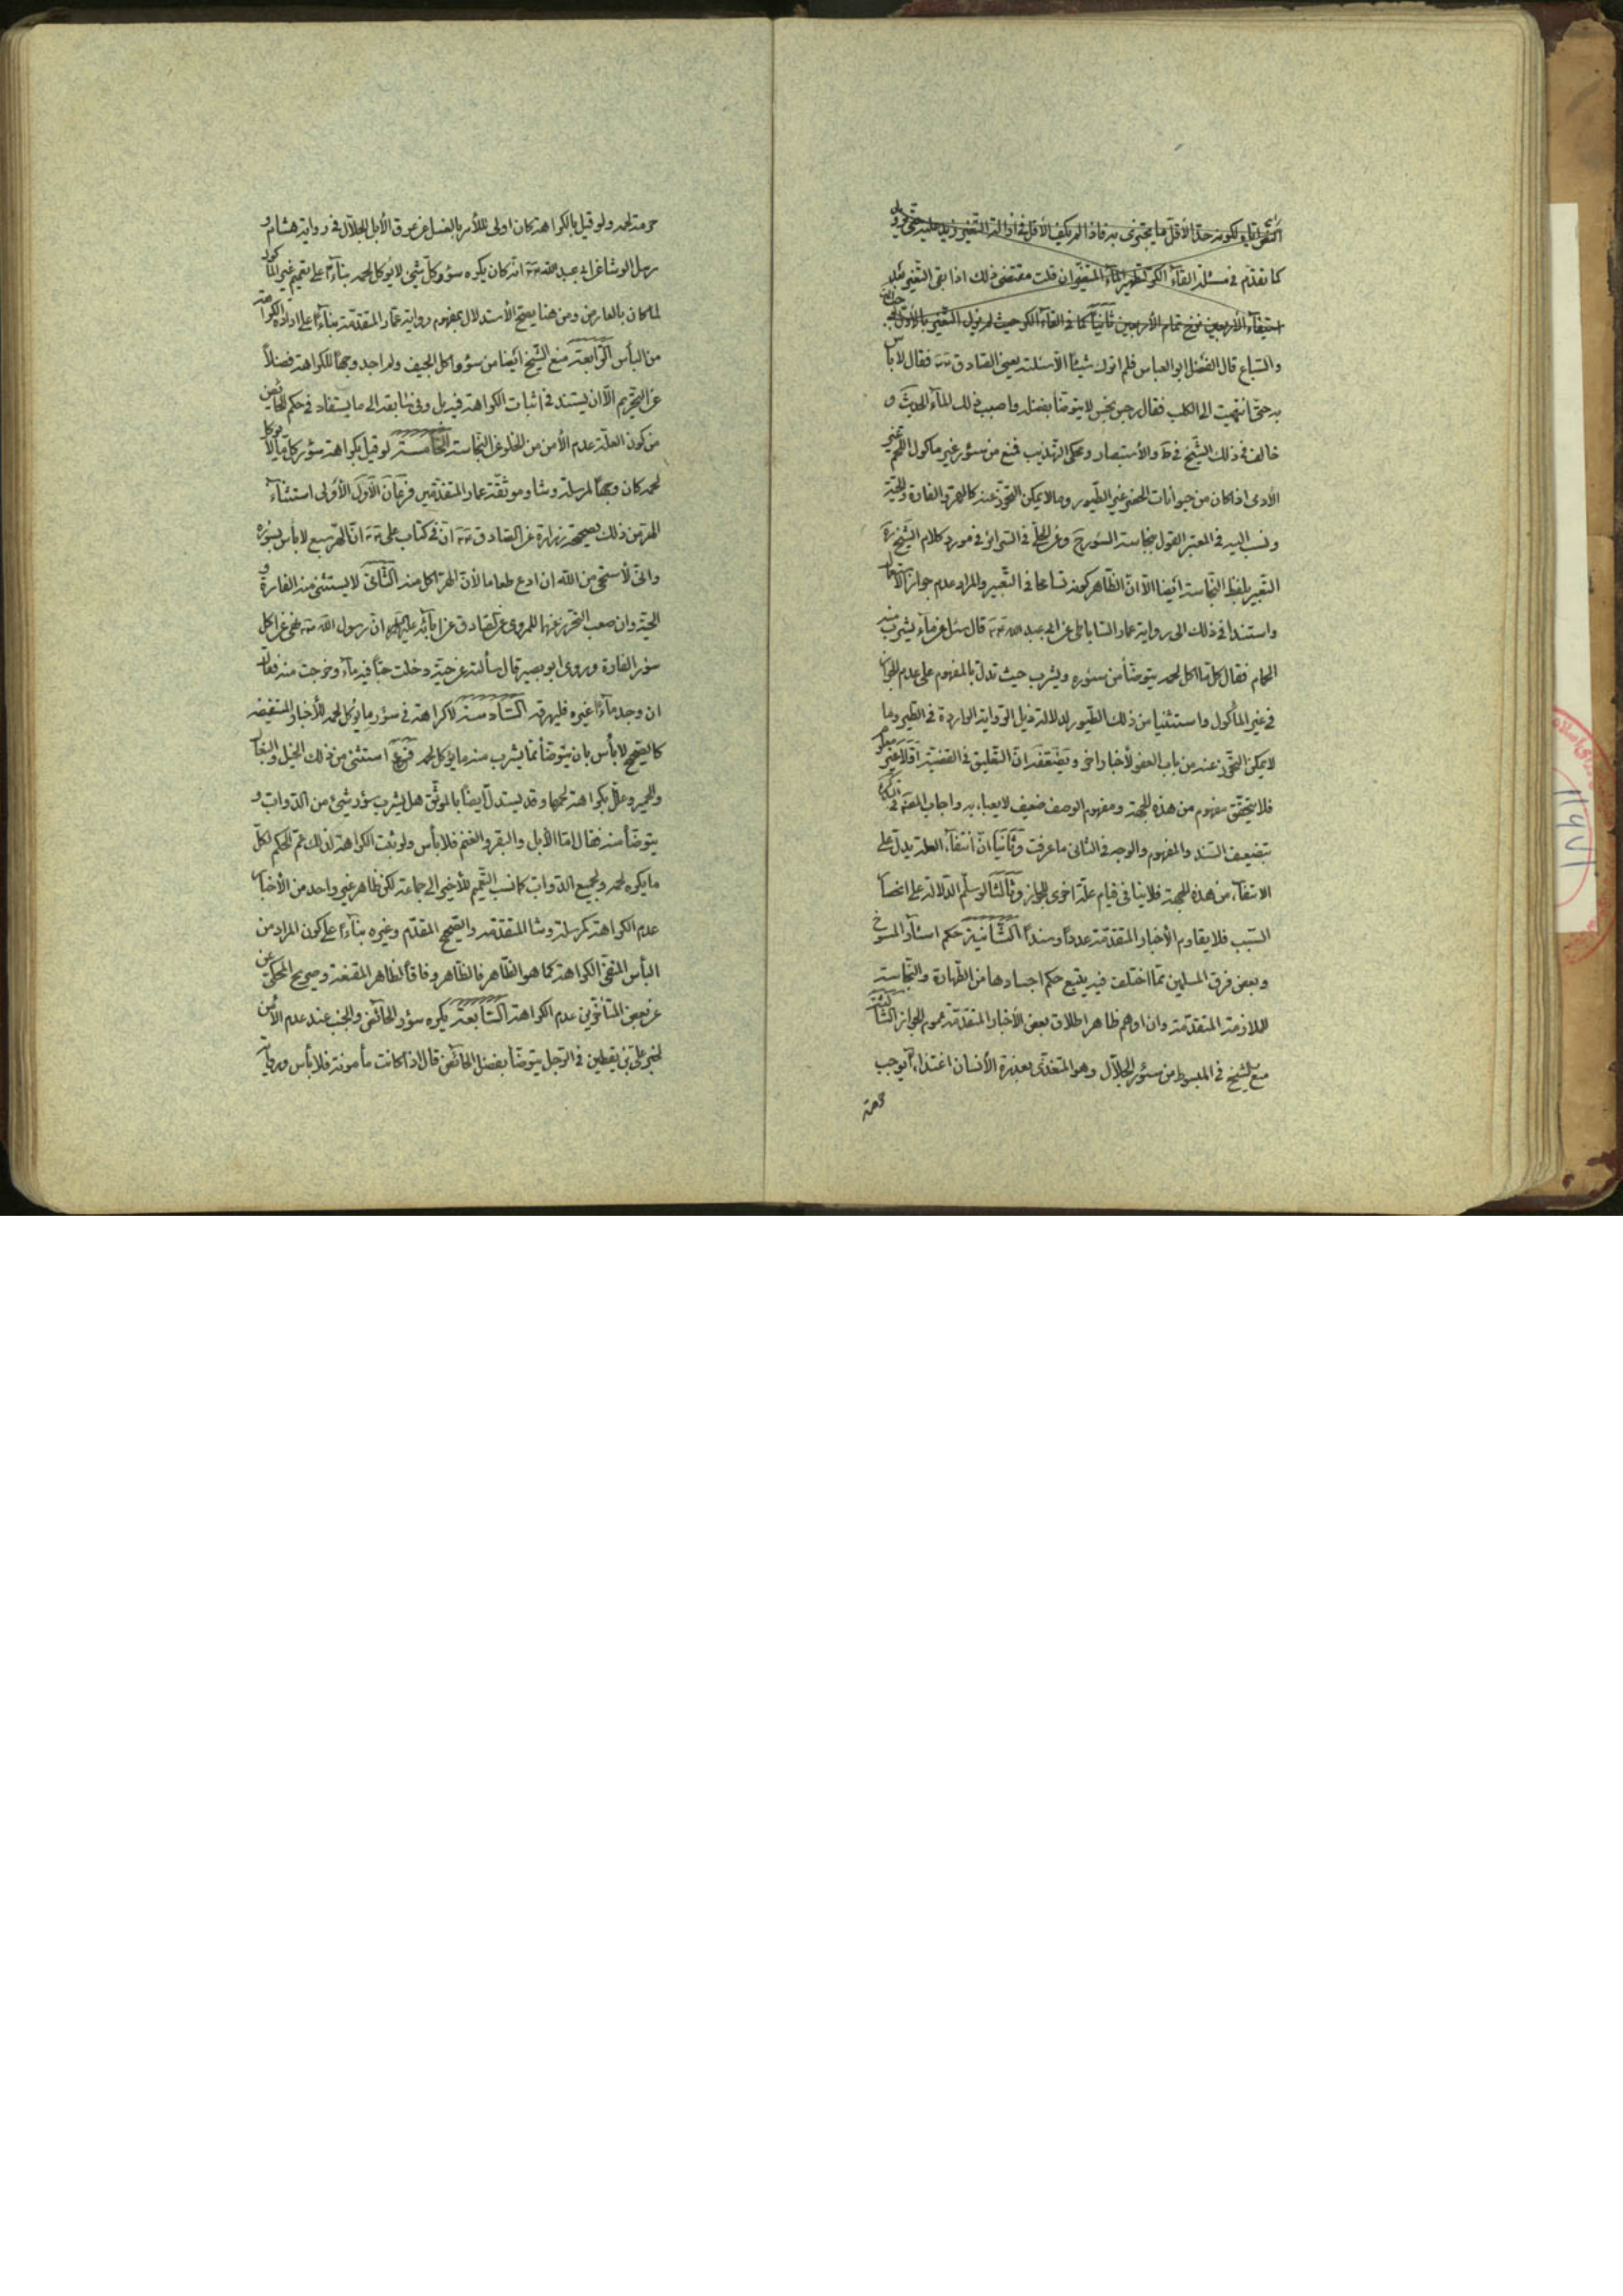 كما تقدّم في مسئلة القاء الكر لتطهير الماء المتغيّر ان قلت مقتضى ذلك اذا بقى التغير بعد
استيفاء الأربعين نزح تمام الأربعين ثانياً كما في القاء الكر حيث لم يزل التغير بالأوّل
والسّباع قال الفضل ابو العباس فلم اترك شيئاً الّا سئلته يعنى الصّادق فقال لا بأس
به حتّى انتهيت الى الكلب فقال رجس نجس لا يتوضّأ بفضله واصبب ذلك الماء الحديث و
خالف في ذلك الشّيخ في والأستبصار وعكى التهذيب فمنع من سئور غير مأكول اللّحم غير
الآدمى اذا كان من حيوانات الحضر غير الطّيور وما لا يمكن التحرّز عنه كالهرة والفارة والحيّة
ونسب اليه في المعتبر القول بنجاسة السّور وعن الحلّى في السّرائر في مورد كلام الشّيخ
التّعبير بلفظ النّجاسة ايضا الّا انّ الظّاهر كونه تسامحا في التّعبير والمراد عدم جواز الاستعمال
واستندا في ذلك الى رواية عمار السّاباطى عن ابى عبد الله قال سئل عن ماء يشرب منه
الحمام فقال كل ما اكل لحمه يتوضّأ من سئوره ويشرب حيث تدلّ بالمفهوم على عدم الجواز
في غير المأكول واستثنيا من ذلك الطّيور لدلالة ذيل الرّواية الواردة في الطّير وما
لا يمكن التحرّز عنه من باب العفو لأخبار اخر ويضعّفه انّ التّعليق في القضيّة اوّلا غير معلوم
فلا يتحقّق مفهوم من هذه الجهة ومفهوم الوصف ضعيف لا يعبأ به واجاب المصنّف في
بتضعيف السّند والمفهوم والوجه في الثّانى ما عرفت وثانيا انّ انتفاء العلّة يدلّ على
الانتفاء من هذه الجهة فلا ينافى قيام علّة اخرى للجواز وثالثا لو سلّم الدّلالة على انحصار
السّبب فلا يقاوم الأخبار المتقدّمة عدداً وسنداً الثّانية حكم اسئار المسوخ
وبعض فرق المسلمين ممّا اختلف فيه يتبع حكم اجسادها من الطّهارة والنّجاسة
للملازمة المتقدّمة وان اوهم ظاهر اطلاق بعض الأخبار المتقدّمة عموم الجواز الثّالثة
منع الشّيخ في المبسوط من سئور الجلّال وهو المتغذّى بعذرة الأنسان اغتذاء يوجب
حرمة
حرمة لحمه ولو قيل بالكراهة كان اولى للأمر بالغسل عن عرق الأبل الجلّال في رواية هشام و
رسل الوشا عن ابى عبد الله انّه كان يكره سؤر كلّ شئ لا يؤكل لحمه بناءً على تعميم غير المأكول
لما كان بالعارض ومن هنا يصحّ الأستدلال بمفهوم رواية عمّار المتقدّمة بناءً على ارادة الكراهة
من البأس الرّابعة منع الشّيخ ايضا من سؤر اكل الجيف ولم اجد وجهاً للكراهة فضلاً
عن التحريم الّا ان يستند في اثبات الكراهة فيه بل وفى سابقه الى ما يستفاد في حكم الحائض
من كون العلّة عدم الأمن من الخلو عن النّجاسة الخامسة لو قيل بكراهة سؤر كلّ ما لا يؤكل
لحمه كان وجهاً لمرسلة وشا وموثّقة عمار المتقدّمتين فرعان الأوّل الأولى استثناء
الهرّ من ذلك بصحيحة زرارة عن الصّادق انّ في كتاب على انّ الهرّ سبع لا بأس بسؤره
وانّى لأستحى من الله ان ادع طعاما لأنّ الهرّ اكل منه الثّانى لا يستثنى منه الفارة و
الحيّة وان صعب التحرز عنهما للمروى عن الصّادق عن آبائه عليهم السلام انّ رسول الله نهى عن اكل
سؤر الفارة وروى ابو بصير قال سألته عن حيّة دخلت حبّا فيه ماء وخرجت منه فقال
ان وجد ماءً غيره فليهرقه السّادسة لا كراهة في سؤر ما يؤكل لحمه للأخبار المستفيضة
كالصّحيح لا بأس بان يتوضّأ ممّا يشرب منه ما يؤكل لحمه فرع استثنى من ذلك الخيل والبغال
والحمير وعلّل بكراهة لحمها وقد يستدلّ ايضا بالموثّق هل يشرب سؤر شئ من الدّوابّ و
يتوضّأ منه فقال امّا الأبل والبقر والغنم فلا بأس ولو ثبت الكراهة لذلك عمّ الحكم لكلّ
ما يكره لحمه ولجميع الدّوابّ كما نسب التّعميم للأخير الى جماعة لكن ظاهر غير واحد من الأخبار
عدم الكراهة كمرسلة وشا المتقدّمة والصّحيح المقدّم وغيره بناءً على كون المراد من
البأس المنفىّ الكراهة كما هو الظّاهر فالظّاهر وفاقاً لظاهر المقنعة وصريح المحكىّ عن
عن بعض المتأخّرين عدم الكراهة السّابعة يكره سؤر الحائض والجنب عند عدم الأمن
لخبر علىّ بن يقطين في الرّجل يتوضّأ بفضل الحائض قال اذا كانت مأمونة فلا بأس ورواية